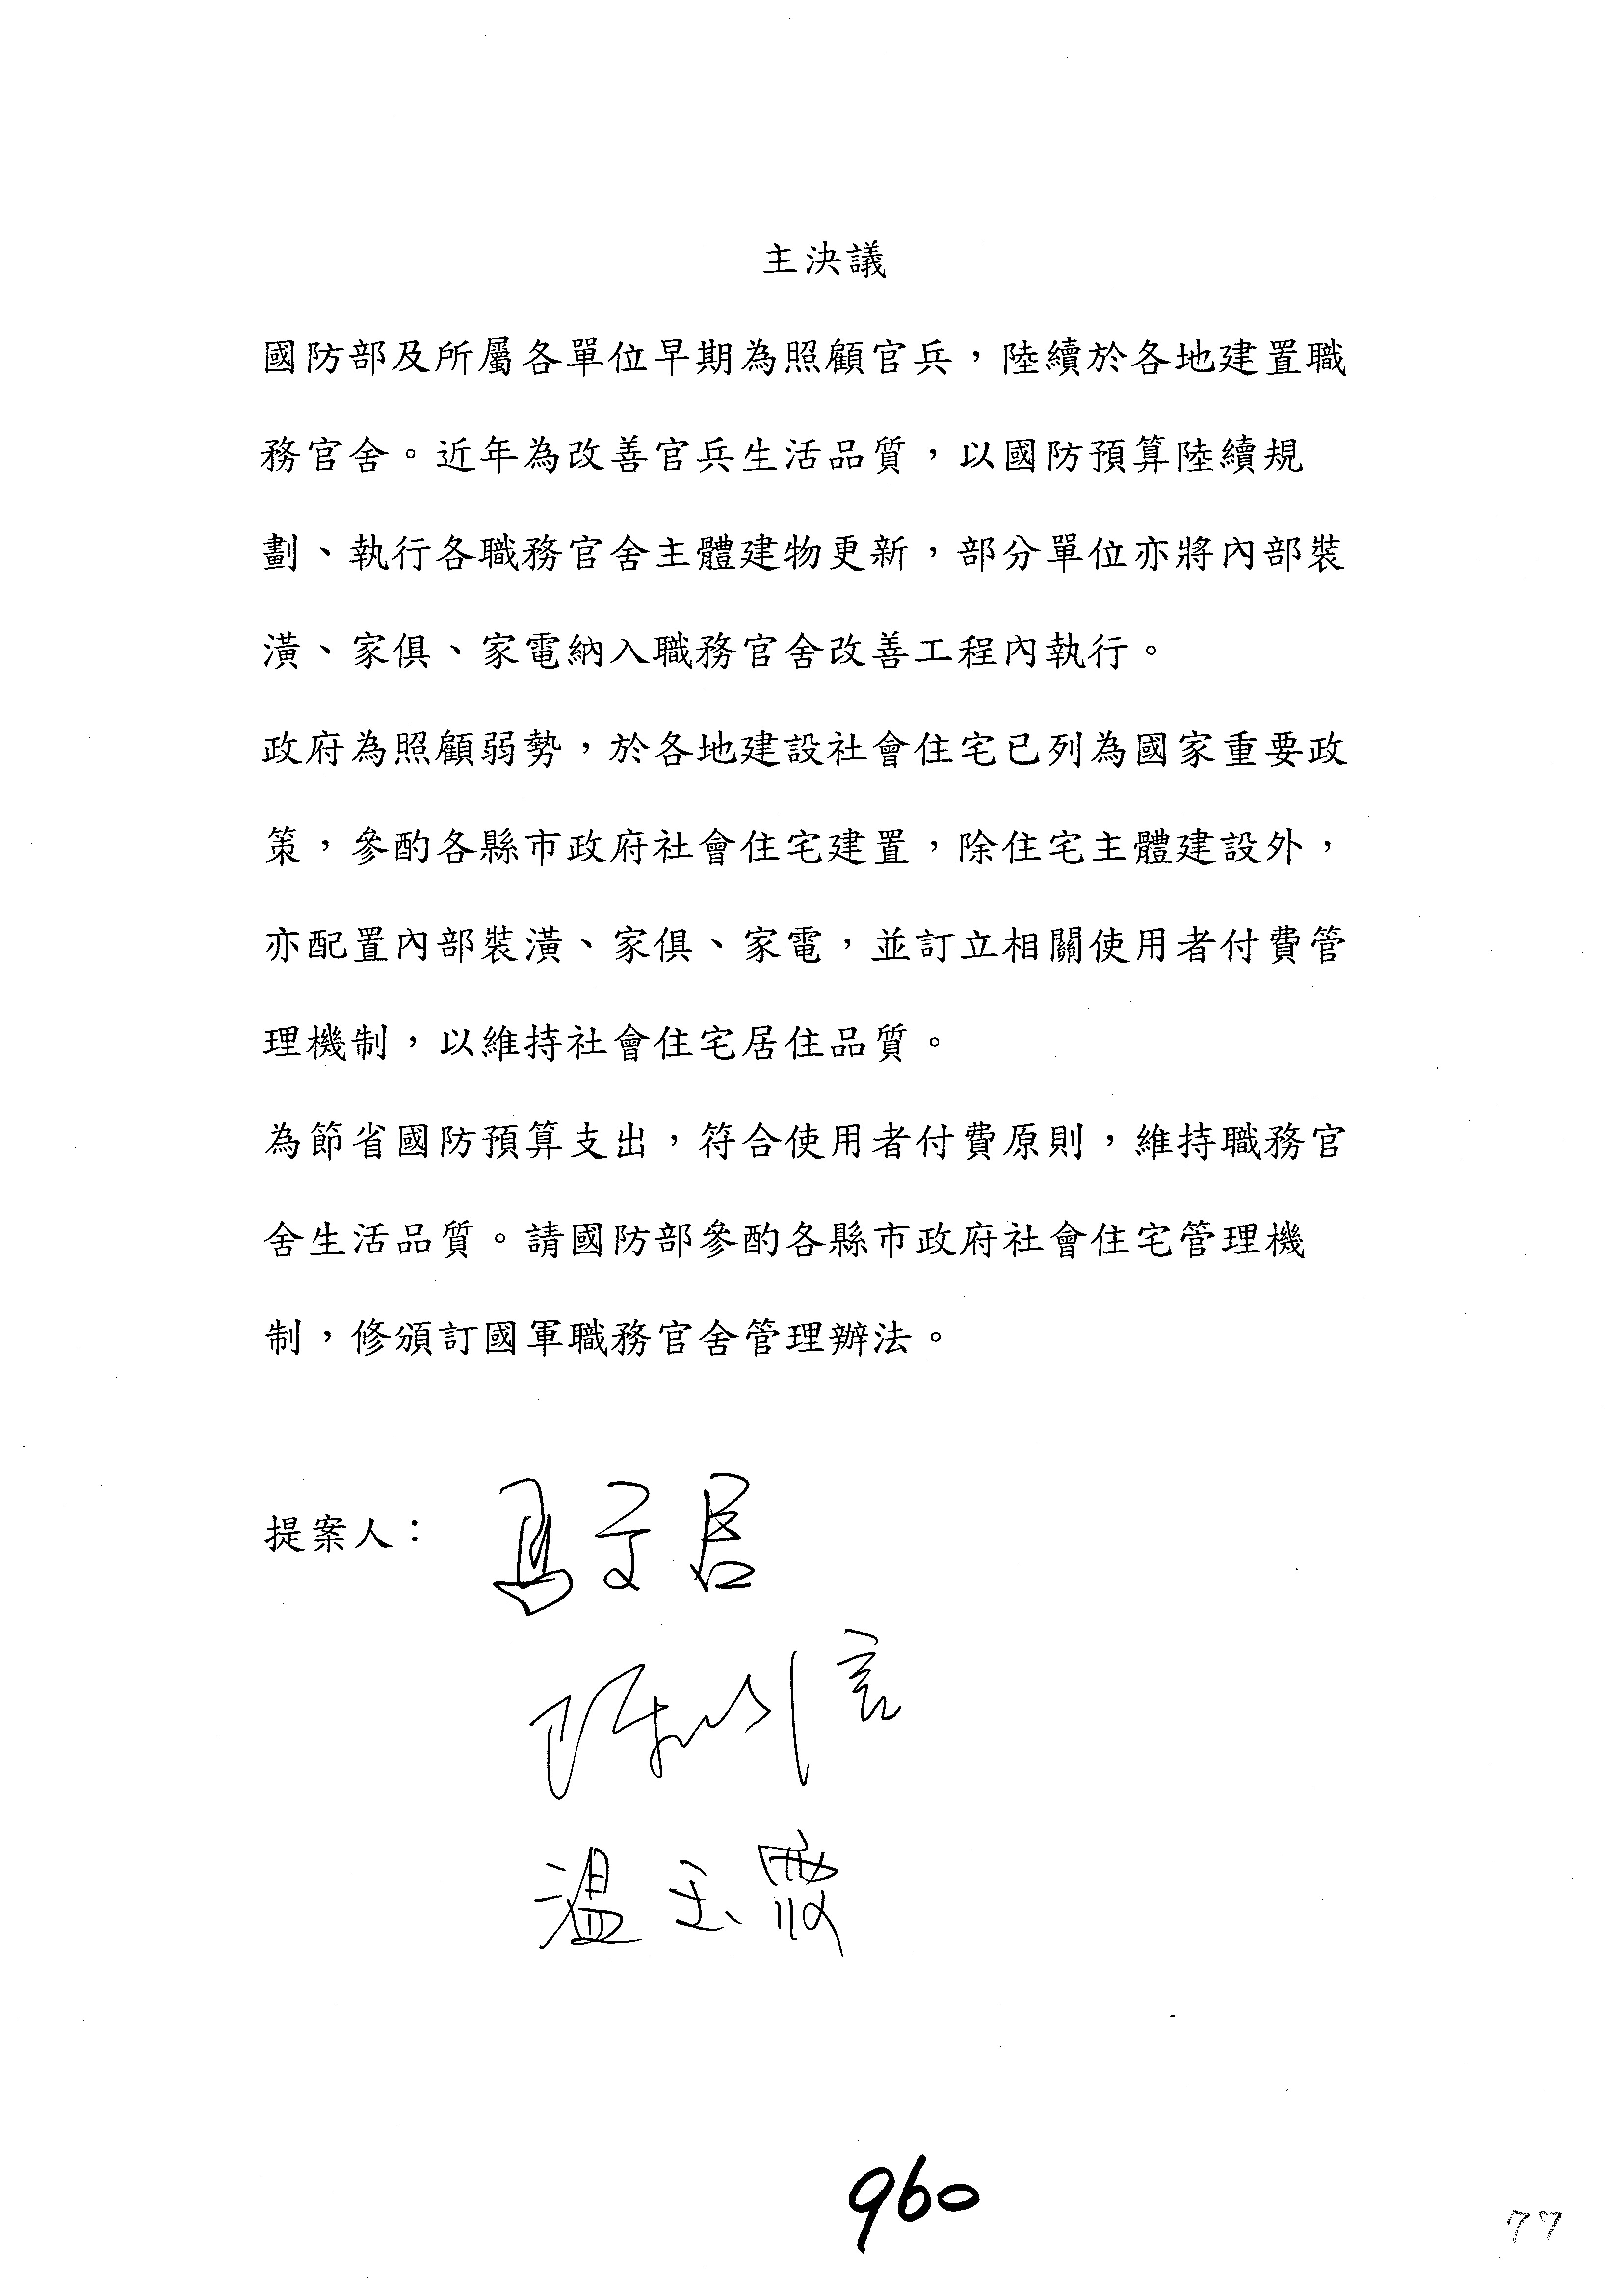 主決議
國防部及所屬各單位早期為照顧官兵，陸續於各地建置職
務官舍。近年為改善官兵生活品質，以國防預算陸續規
劃、執行各職務官舍主體建物更新，部分單位亦將內部裝
潢、家俱、家電納入職務官舍改善工程內執行。
政府為照顧弱勢，於各地建設社會住宅已列為國家重要政
策，參酌各縣市政府社會住宅建置，除住宅主體建設外，
亦配置內部裝潢、家俱、家電，並訂立相關使用者付費管
理機制，以維持社會住宅居住品質。
為節省國防預算支出，符合使用者付費原則，維持職務官
舍生活品質。請國防部參酌各縣市政府社會住宅管理機
制，修頒訂國軍職務官舍管理辦法。
提案人：馬文君
溫玉霞
960
77